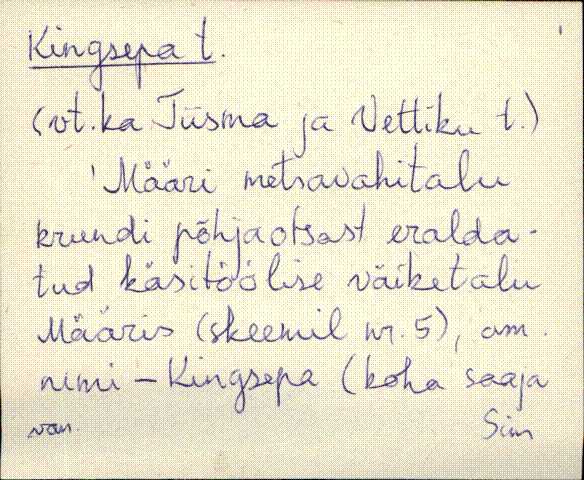 Kingsepa t.
(vt. ka Tiisma ja Vettiku t.)
'Määri metsavahitalu
krundi põhjaotsast eralda-
tud käsitöölise väiketalu
Määris (skeemil nr. 5), am.
nimi – Kingsepa (koha saaja
van. Sim